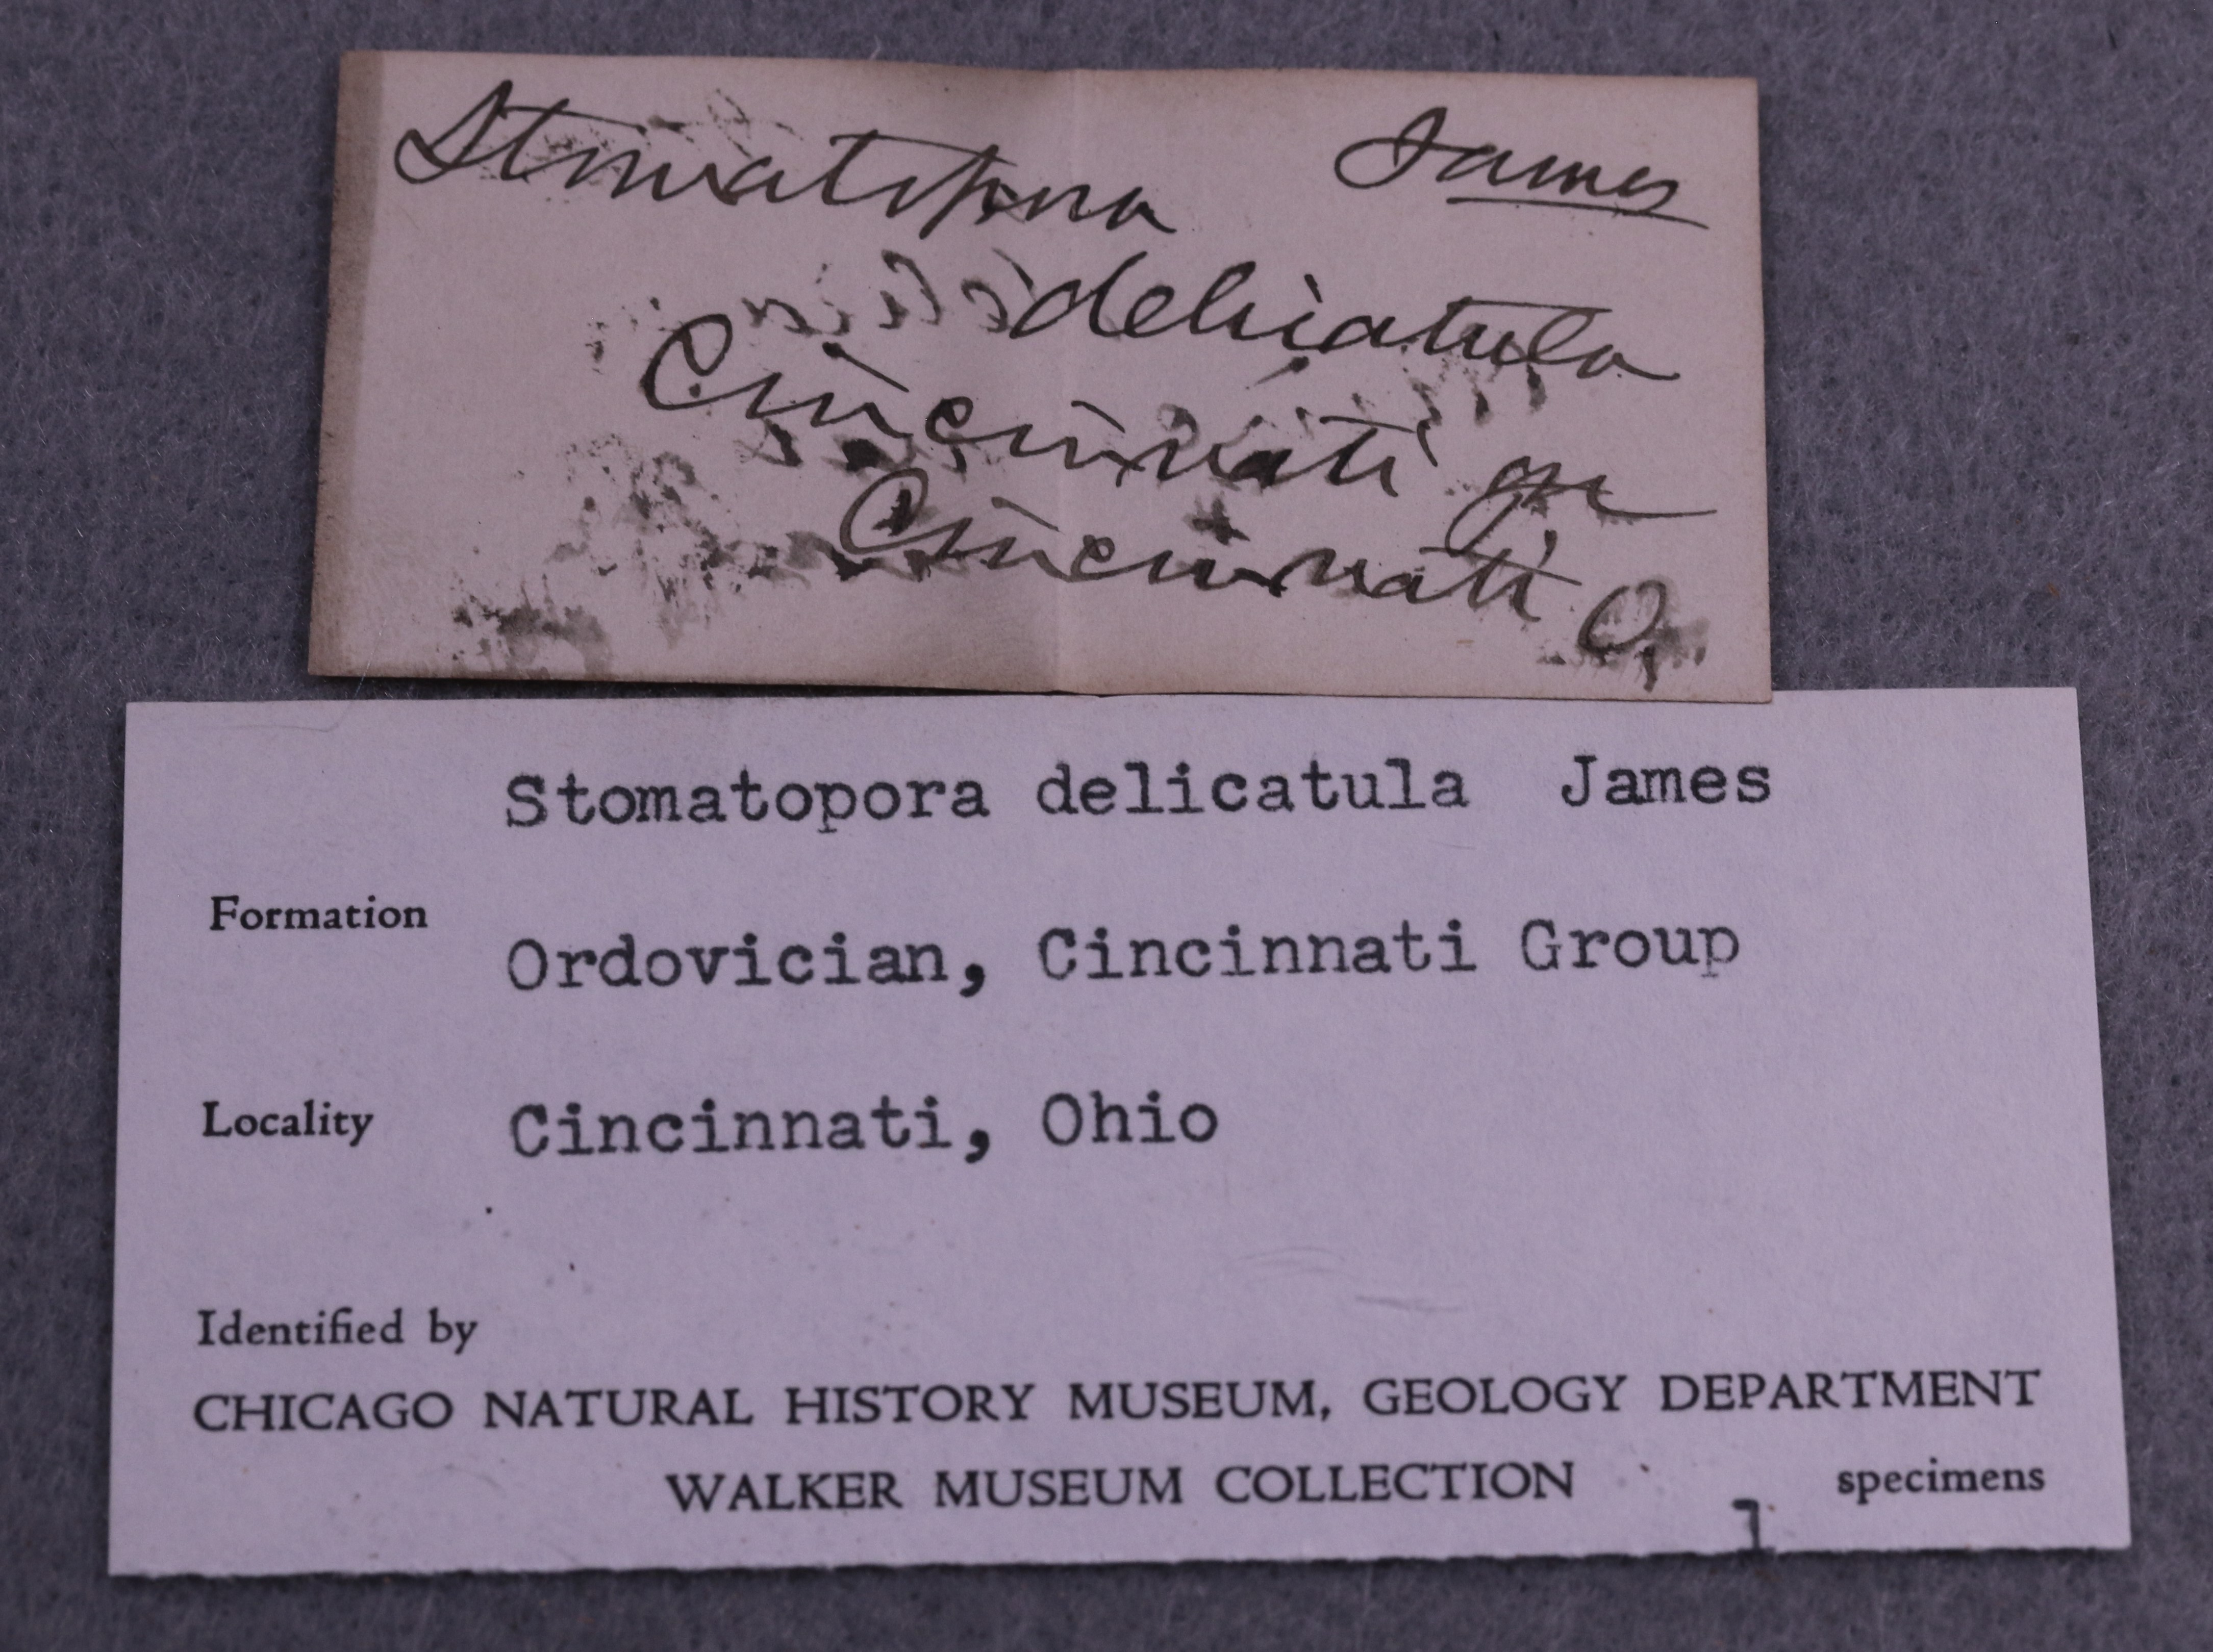 Stomatopora James
delicatula
Cincinnati gr
Cincinnati O,
Stomatopora delicatula James
Formation
Ordovician, Cincinnati Group
Locality Cincinnati, Ohio
Identified by
CHICAGO NATURAL HISTORY MUSEUM, GEOLOGY DEPARTMENT
WALKER MUSEUM COLLECTION 1 specimens